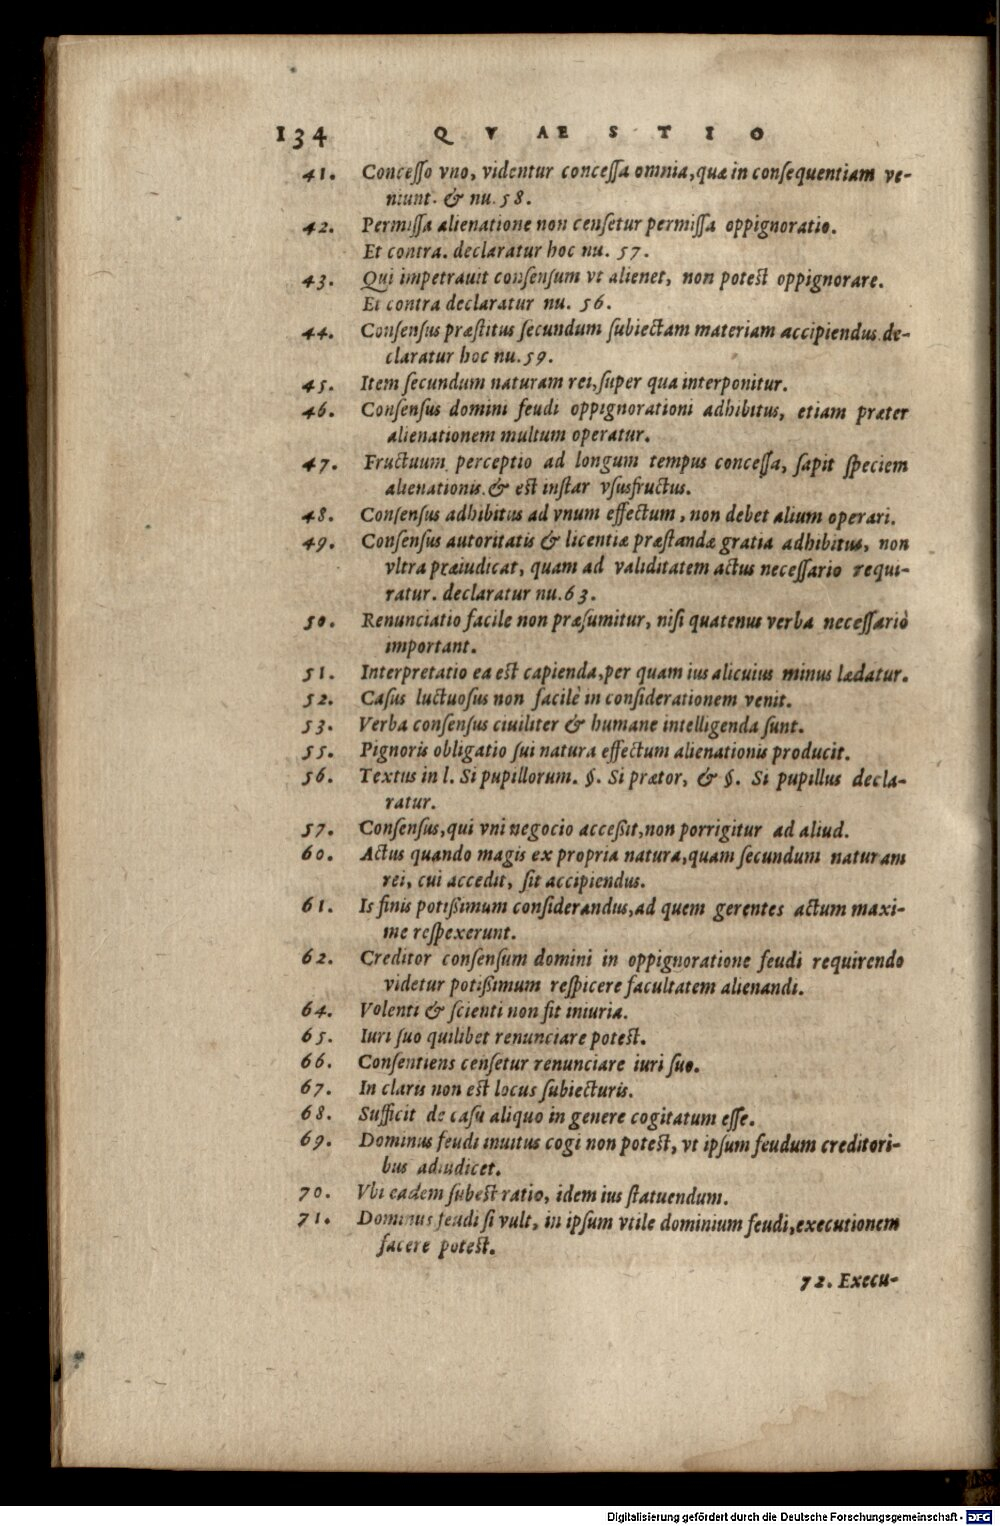 134 Q V AE S T I O
41. Concesso vno, videntur concessa omnia, quæ in consequentiam ve-
niunt. & nu. 58.
42. Permissa alienatione non censetur permissa oppignoratio.
Et contra. declaratur hoc nu. 57.
43. Qui impetrauit consensum vt alienet, non potest oppignorare.
Et contra declaratur nu. 56.
44. Consensus præstitus secundum subiectam materiam accipiendus. de-
claratur hoc nu. 59.
45. Item secundum naturam rei, super qua interponitur.
46. Consensus domini feudi oppignorationi adhibitus, etiam præter
alienationem multum operatur.
47. Fructuum perceptio ad longum tempus concessa, sapit speciem
alienationis. & est instar vsusfructus.
48. Consensus adhibitus ad vnum effectum, non debet alium operari.
49. Consensus autoritatis & licentiæ præstandæ gratia adhibitus, non
vltra præiudicat, quam ad validitatem actus necessario requi-
ratur. declaratur nu. 63.
50. Renunciatio facile non præsumitur, nisi quatenus verba necessariò
important.
51. Interpretatio ea est capienda, per quam ius alicuius minus lædatur.
52. Casus luctuosus non facilè in considerationem venit.
53. Verba consensus ciuiliter & humane intelligenda sunt.
55. Pignoris obligatio sui natura effectum alienationis producit.
56. Textus in l. Si pupillorum. §. Si prætor, & §. Si pupillus decla-
ratur.
57. Consensus, qui vni negocio accessit, non porrigitur ad aliud.
60. Actus quando magis ex propria natura, quam secundum naturam
rei, cui accedit, sit accipiendus.
61. Is finis potissimum considerandus, ad quem gerentes actum maxi-
me respexerunt.
62. Creditor consensum domini in oppignoratione feudi requirendo
videtur potissimum respicere facultatem alienandi.
64. Volenti & scienti non fit iniuria.
65. Iuri suo quilibet renunciare potest.
66. Consentiens censetur renunciare iuri suo.
67. In claris non est locus subiecturis.
68. Sufficit de casu aliquo in genere cogitatum esse.
69. Dominus feudi inuitus cogi non potest, vt ipsum feudum creditori-
bus adiudicet.
70. Vbi eadem subest ratio, idem ius statuendum.
71. Dominus feudi si vult, in ipsum vtile dominium feudi, executionem
facere potest.
72. Execu-
Digitalisierung gefördert durch die Deutsche Forschungsgemeinschaft - DFG